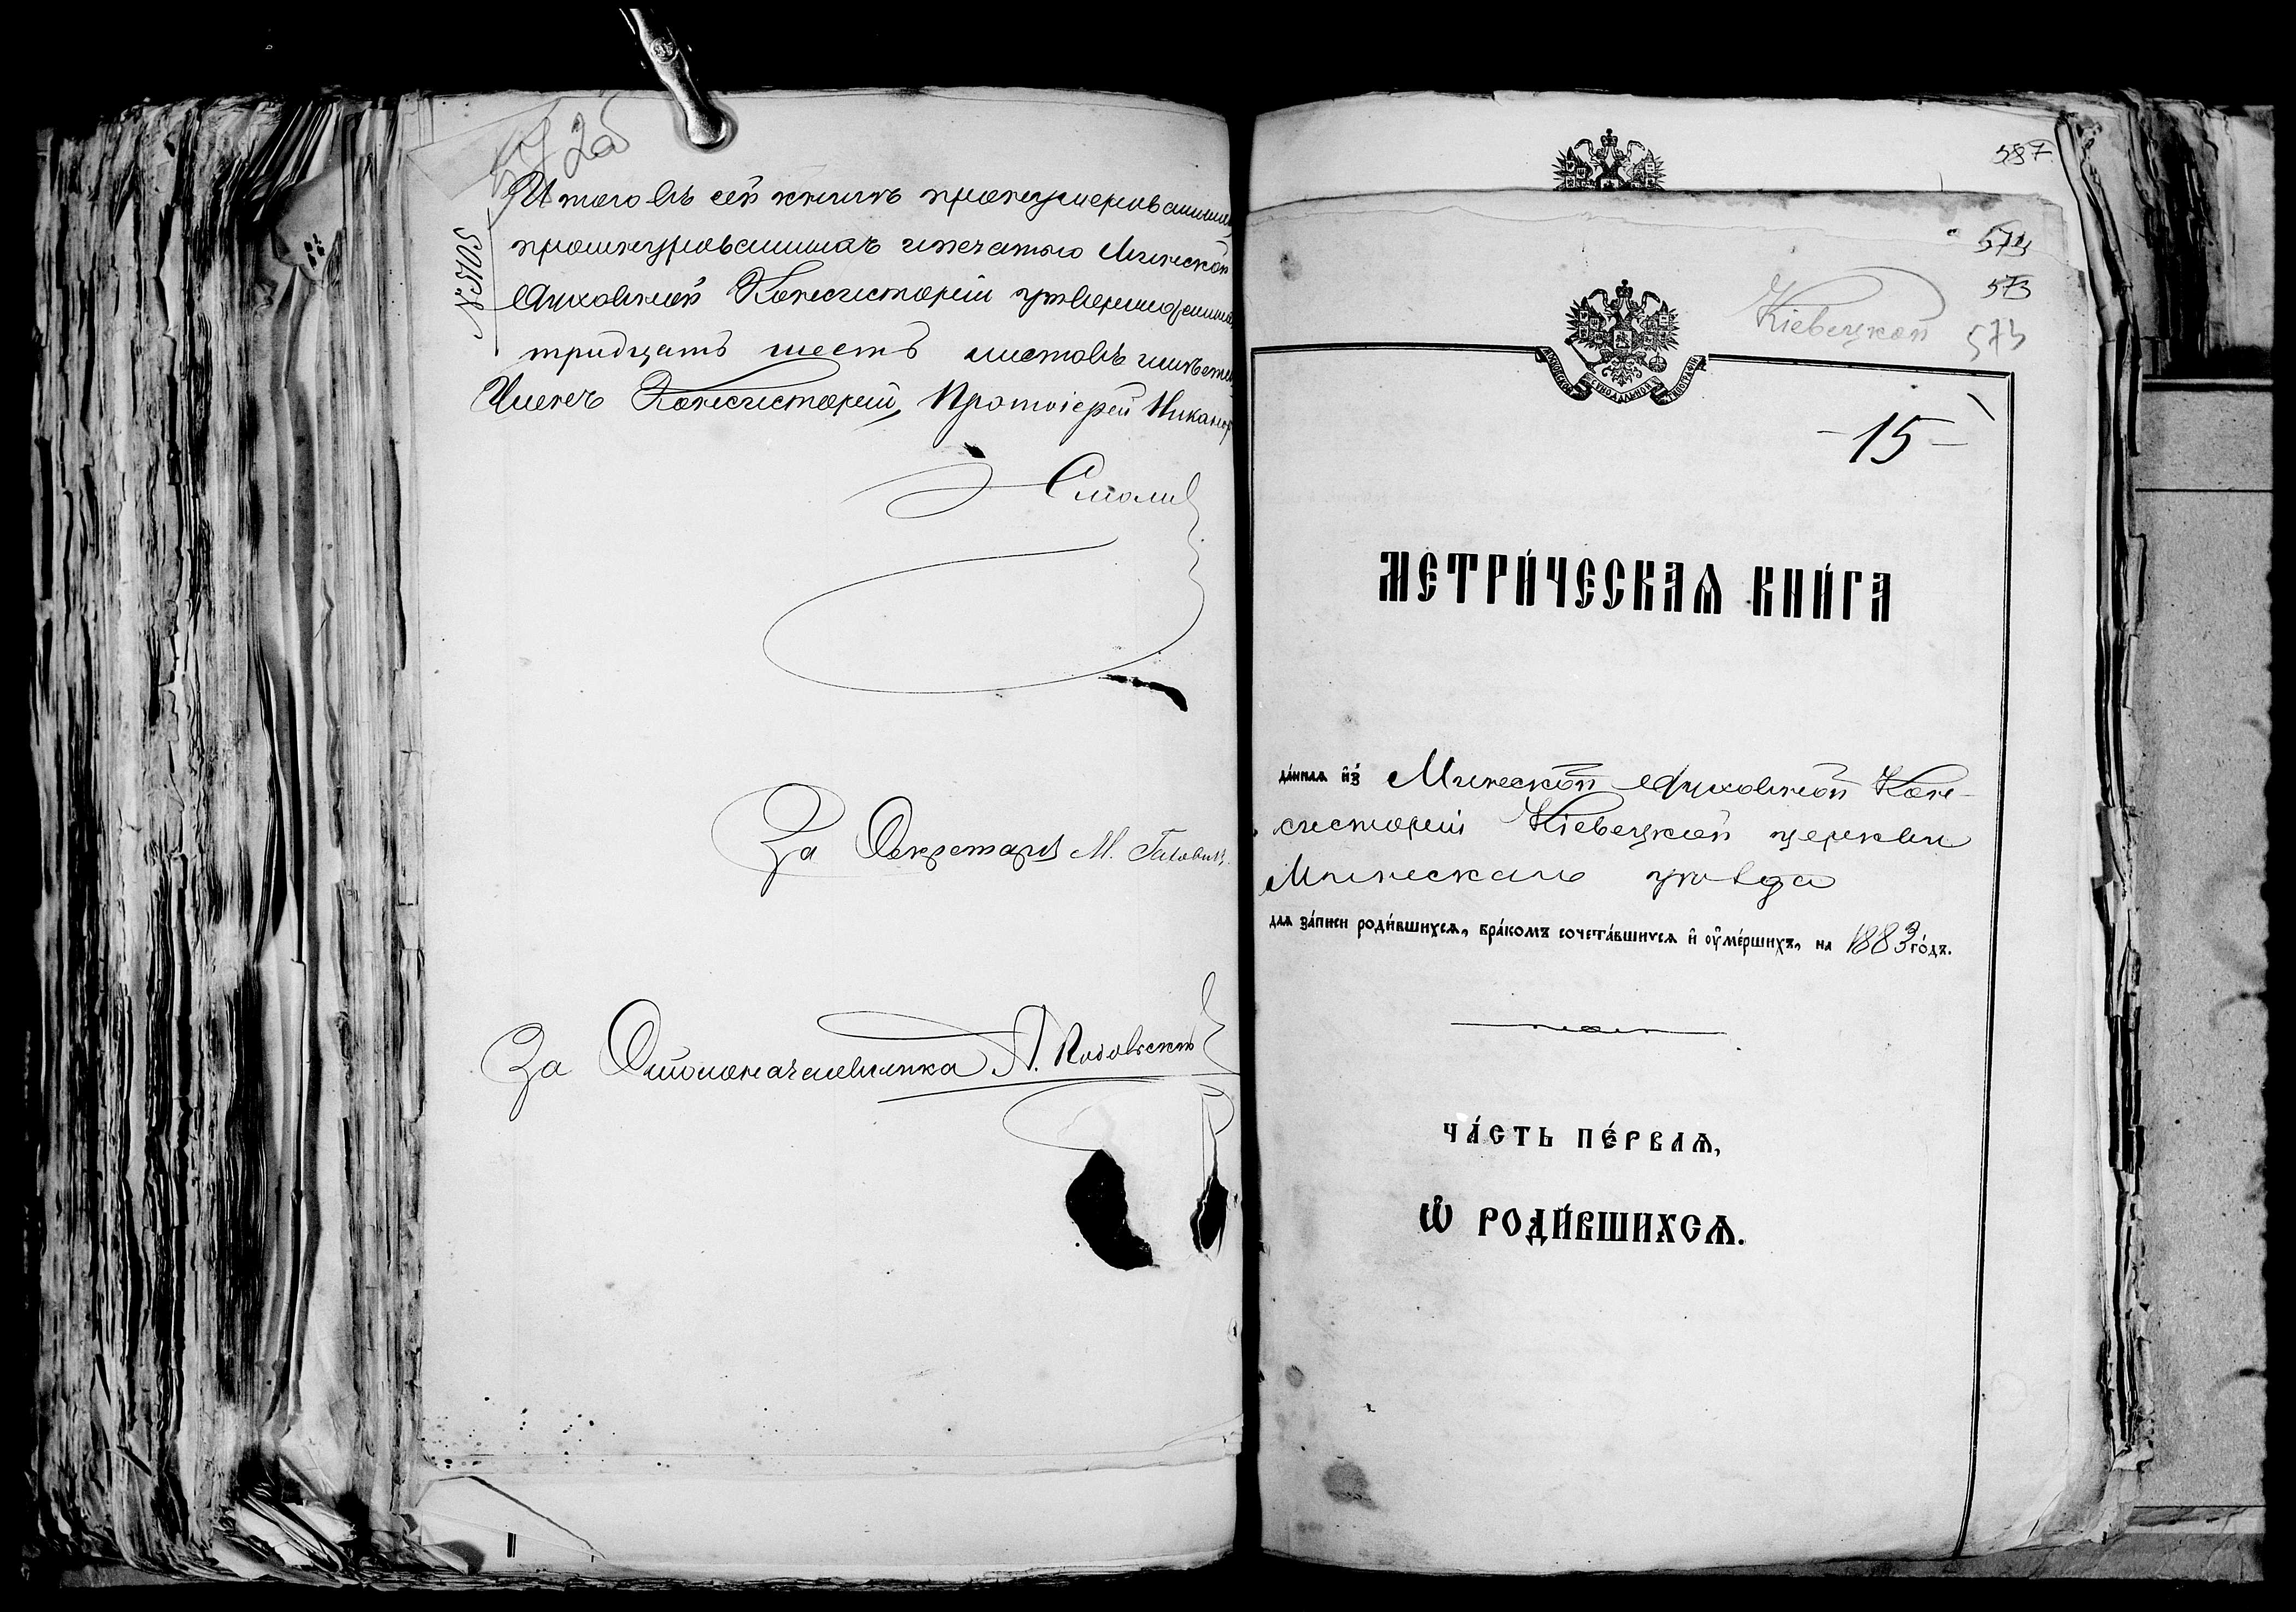 Итого въ сей книгѣ пронумерованныхъ
прошнурованныхъ и печатью Минской
Духовной Консисторіи утвержденныхъ
тридцать шесть листовъ имѣется
Членъ Консисторіи, Протоіерей Никаноръ
Смолич
За Секретаря М.
За Столоначальника А.
№ 5105
587
574
573
573
Кіевецкой
МОСКОВСКОЙ СѴНОДАЛЬНОЙ ТИПОГРАФІИ
-15-
МЕТРИ́ЧЕСКАѦ КНИ́ГА
да́ннаѧ и҆з̾ Минской Духовной Кон-
систоріи Кіевецкой церкви
Минскаго уѣзда
длѧ за́писи роди́вшихсѧ, бра́комъ сочета́вшихсѧ и҆ ᲂу҆ме́ршихъ, на 1883 го́дъ.
ЧА́СТЬ ПЕ́РВАѦ,
Ѽ РОДИ́ВШИХСѦ.